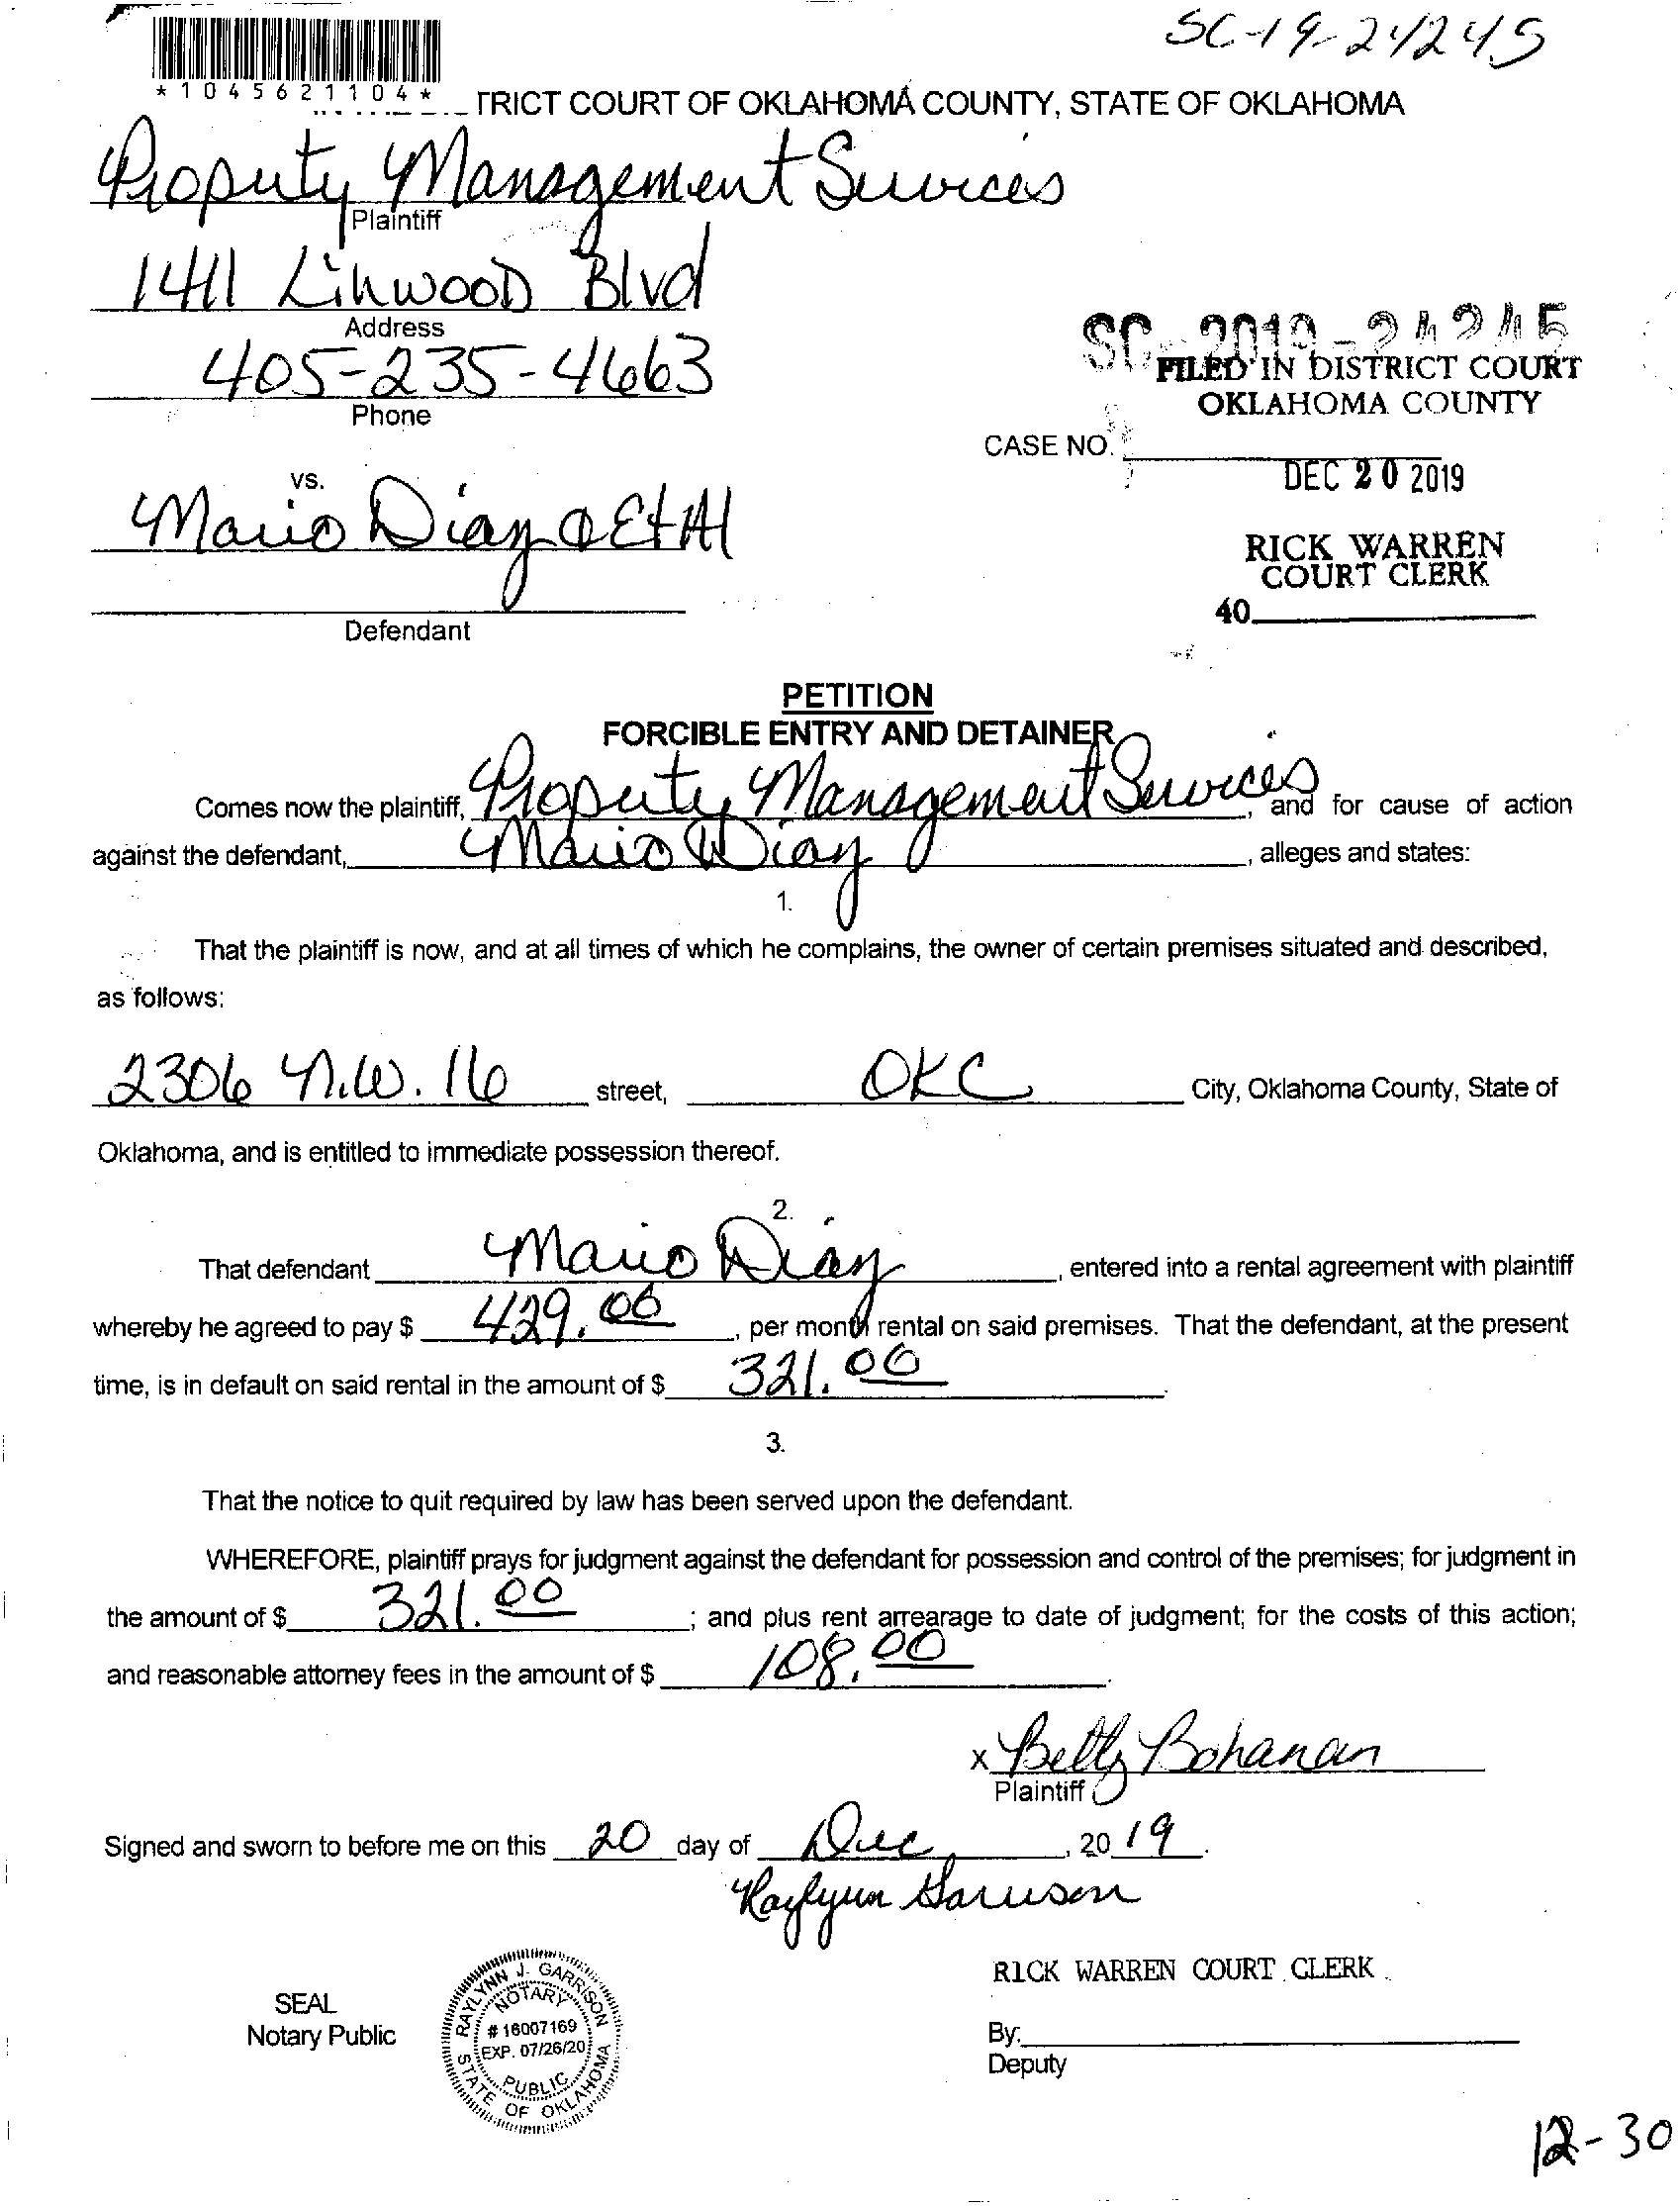 SC-19-24245
*1045621104*
TRICT COURT OF OKLAHOMA COUNTY, STATE OF OKLAHOMA
Property Management Services
Plaintiff
1411 Linwood Blvd
Address
405-235-4663
Phone
SC-2019-24245
FILED IN DISTRICT COURT
OKLAHOMA COUNTY
CASE NO.
DEC 20 2019
vs.
Mario Diaz & Et Al
RICK WARREN
COURT CLERK
40
Defendant
PETITION
FORCIBLE ENTRY AND DETAINER
Comes now the plaintiff, Property Management Services, and for cause of action
against the defendant, Mario Diaz, alleges and states:
1.
That the plaintiff is now, and at all times of which he complains, the owner of certain premises situated and described,
as follows:
2306 N.W. 16 street, OKC City, Oklahoma County, State of
Oklahoma, and is entitled to immediate possession thereof.
2.
That defendant Mario Diaz, entered into a rental agreement with plaintiff
whereby he agreed to pay $ 429.00, per month rental on said premises. That the defendant, at the present
time, is in default on said rental in the amount of $ 321.00
3.
That the notice to quit required by law has been served upon the defendant.
WHEREFORE, plaintiff prays for judgment against the defendant for possession and control of the premises; for judgment in
the amount of $ 321.00; and plus rent arrearage to date of judgment; for the costs of this action;
and reasonable attorney fees in the amount of $ 108.00.
x Betty Bohanan
Plaintiff
Signed and sworn to before me on this 20 day of Dec, 2019.
Raylynn Garrison
RICK WARREN COURT CLERK
SEAL
Notary Public
RAYLYNN J. GARRISON
NOTARY
# 16007169
EXP. 07/26/20
PUBLIC
STATE OF OKLAHOMA
By:
Deputy
12-30